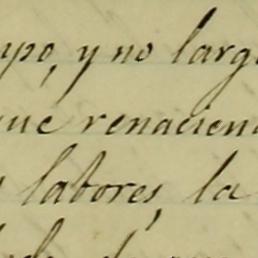 mpo, y no larg
que renacien
labores, la